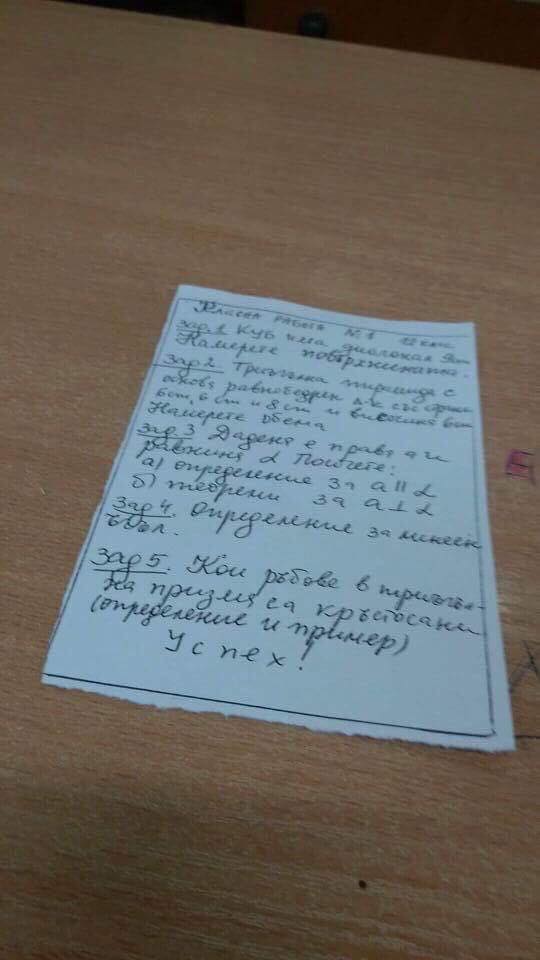 Класна работа №1 12 клас
Зад.1 Куб има диагонал 9cm
Намерете повърхнината.
Зад 2. Триъгълна пирамида с
основа равнобедрен Δ-к със страни
6cm, 6 cm и 8 cm и височина 6cm
Намерете обема
Зад. 3 Дадена е права a и
равнина α Пишете:
а) определение за a || α
б) теореми за a ⊥ α
Зад 4. Определение за линеен
ъгъл.
Зад 5. Кои ръбове в триъгъл-
на призма са кръстосани
(определение и пример)
Успех!
E